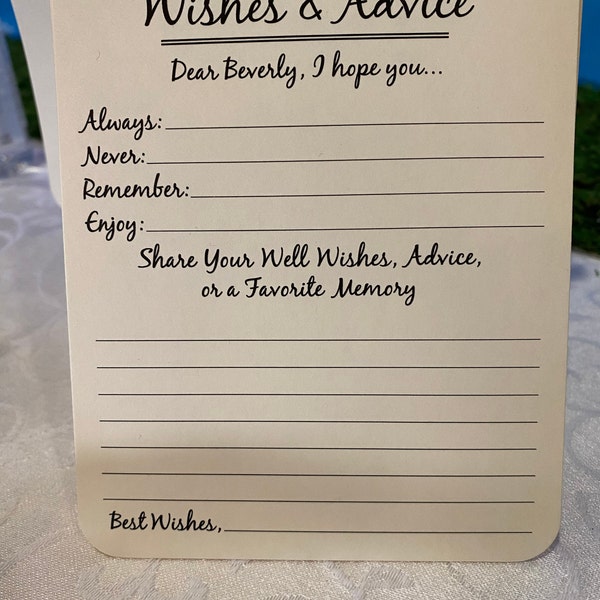 Wishes & Advice
Dear Beverly, I hope you...
Always:
Never:
Remember:
Enjoy:
Share Your Well Wishes, Advice,
or a Favorite Memory
Best Wishes,